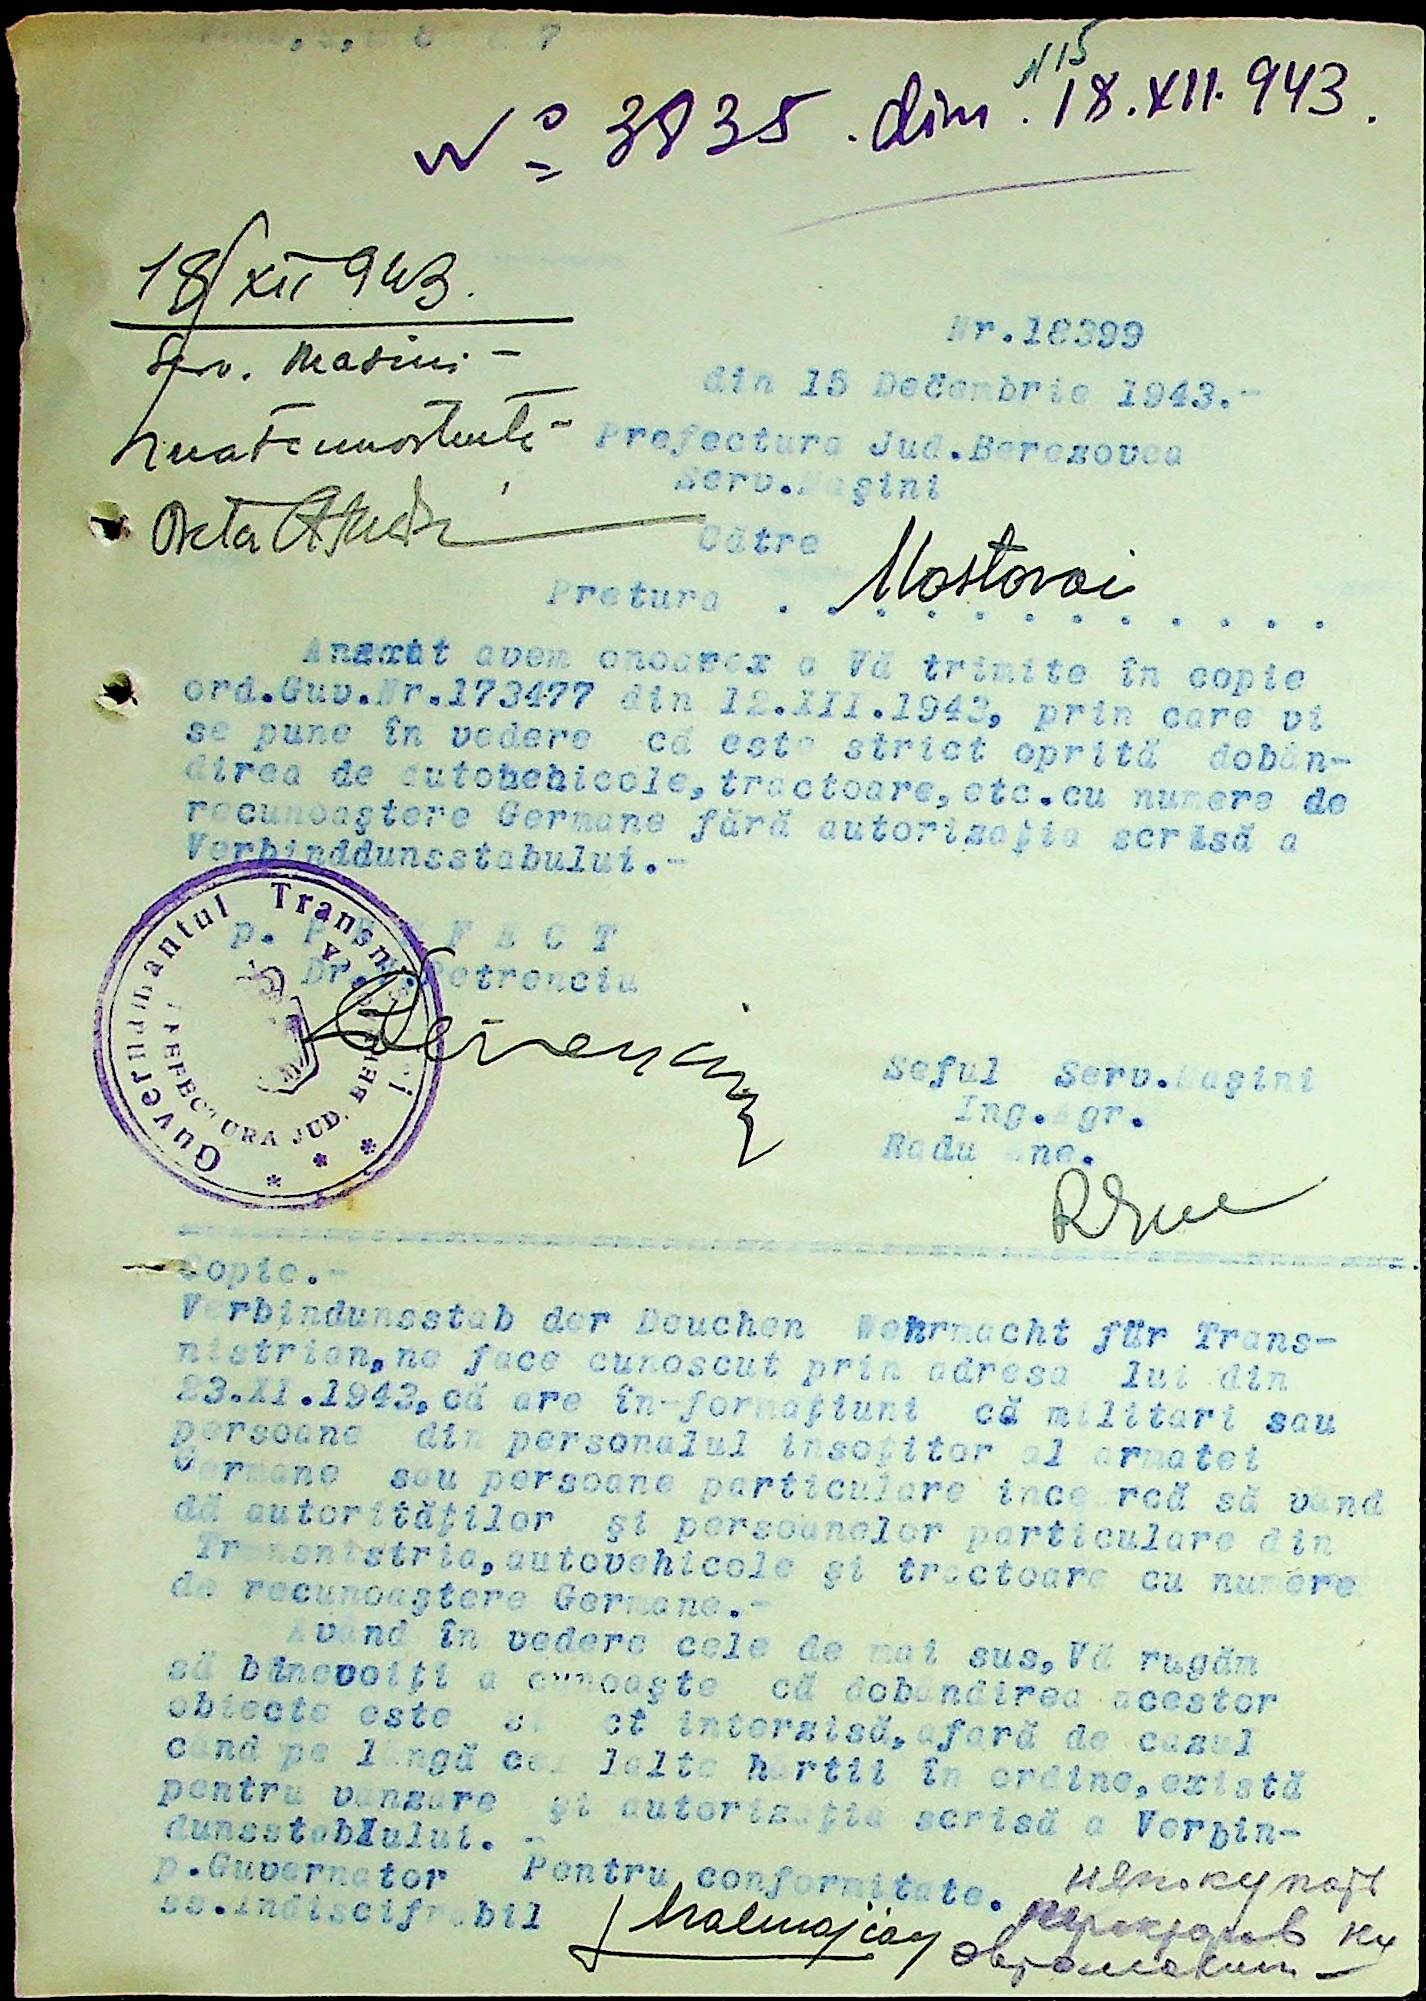 № 3835 . dim . 18.XII.943.
N 15
18/XII 943.
Serv. Masini -
Nr.18399
din 15 Decembrie 1943.-
Prefectura Jud.Berezovca
Serv.Maşini
Către
Pretura . . . . . . . . . . . . .
Mostovoi
Anexat avem onoarex a Vă trimite în copie
ord.Guv.Nr.173477 din 12.XII.1943, prin care vi
se pune în vedere că este strict oprită dobân-
direa de autohehicole,tractoare,etc.cu numere de
recunoaştere Germane fără autorizaţia scrisă a
Verbinddunsstabului.-
p. P R E F E C T
Dr. Petrenciu
Guvernamantul Transnistriei
PREFECTURA JUD. BEREZOVCA
Seful Serv.Maşini
Ing.Agr.
Radu Ene.
Copie.-
Verbindunsstab der Deuchen Wehrmacht für Trans-
nistrien,ne face cunoscut prin adresa lui din
23.XI.1943,că are în-formaţiuni că militari sau
persoane din personalul insoţitor al armatei
Germane sau persoane particulare incearcă să vând
dă autorităţilor şi persoanelor particulare din
Transnistria,autovehicole şi tractoare cu numere
de recunoaştere Germane.-
Având în vedere cele de mai sus,Vă rugăm
să binevoiţi a cunoaşte că dobandirea acestor
obiecte este strict interzisă,afară de cazul
când pe lângă celelalte hârtii în ordine,există
pentru vanzare şi autorizaţia scrisă a Verbin-
dunsstablului. -
p.Guvernator Pentru conformitate.
ss.indiscifrabil